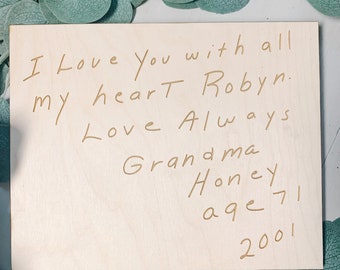 I Love You with all
my heart Robyn.
Love Always
Grandma
Honey
age 71
2001